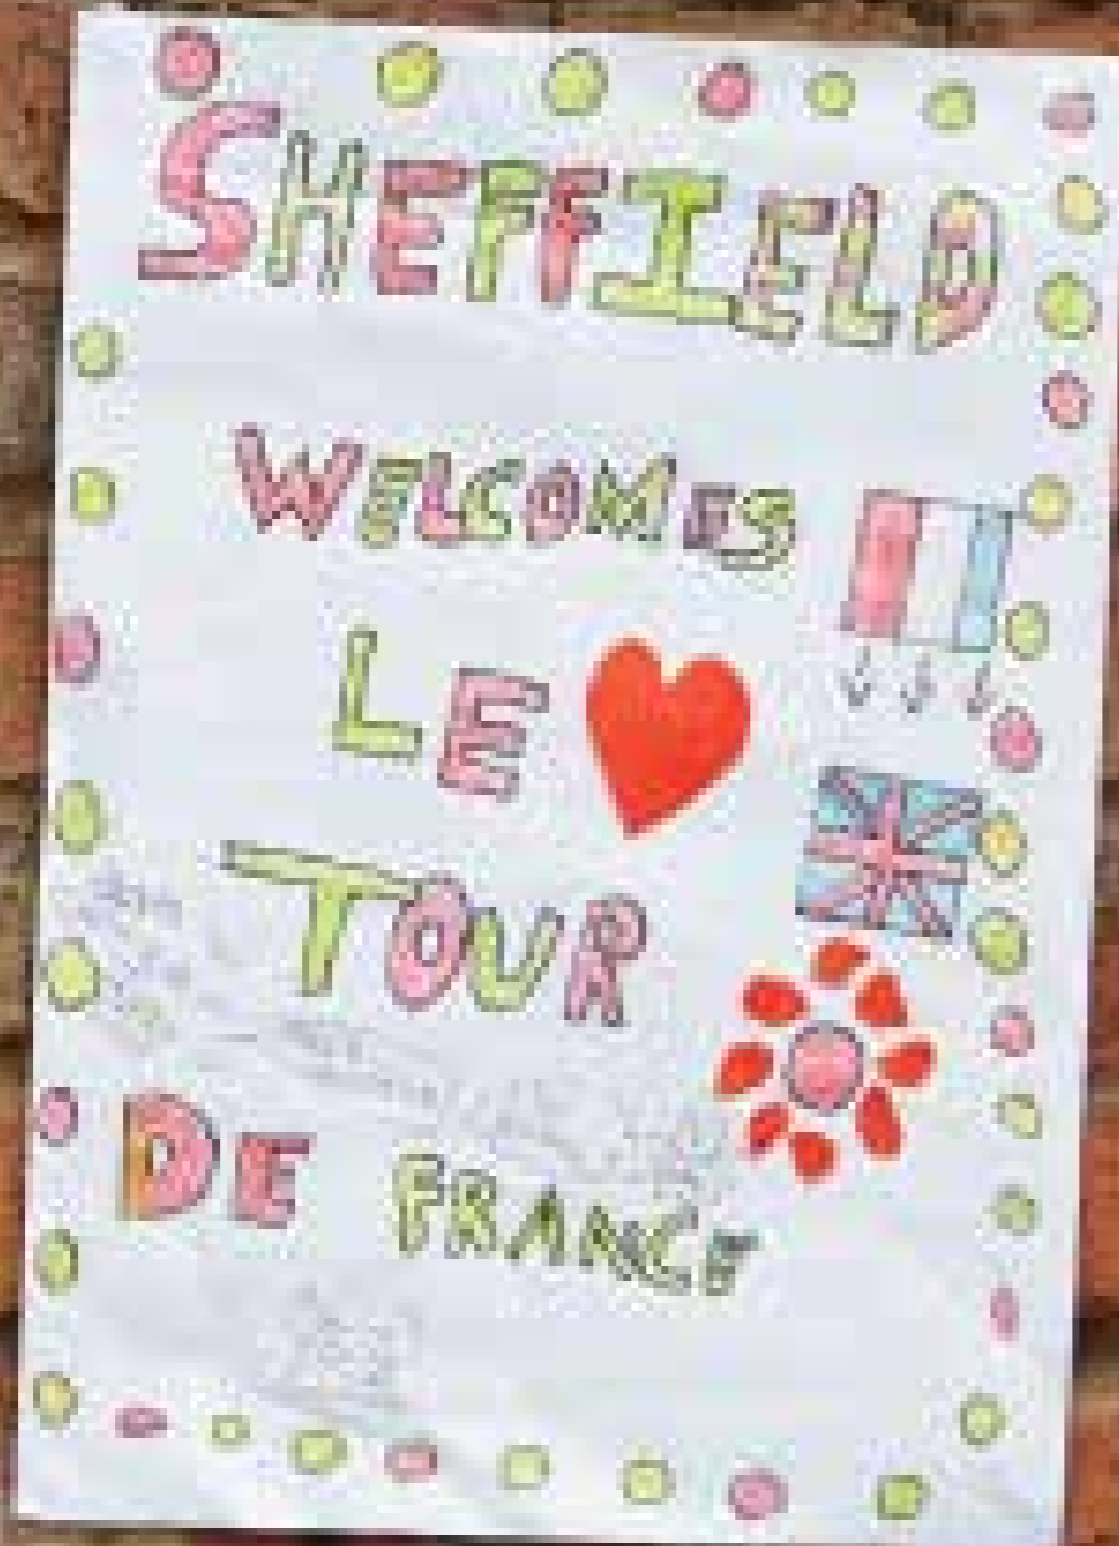 SHEFFIELD
WELCOMES
LE
TOUR
DE FRANCE